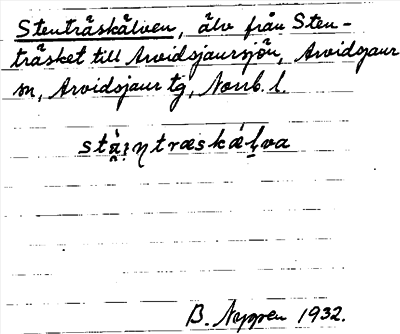 Stenträskälven, älv från Sten-
träsket till Arvidsjaursjön, Arvidsjaur
sn, Arvidsjaur tg, Norrb. l.
stɑ̀i̯ηtræskǽl̠va
B. Nygren 1932.